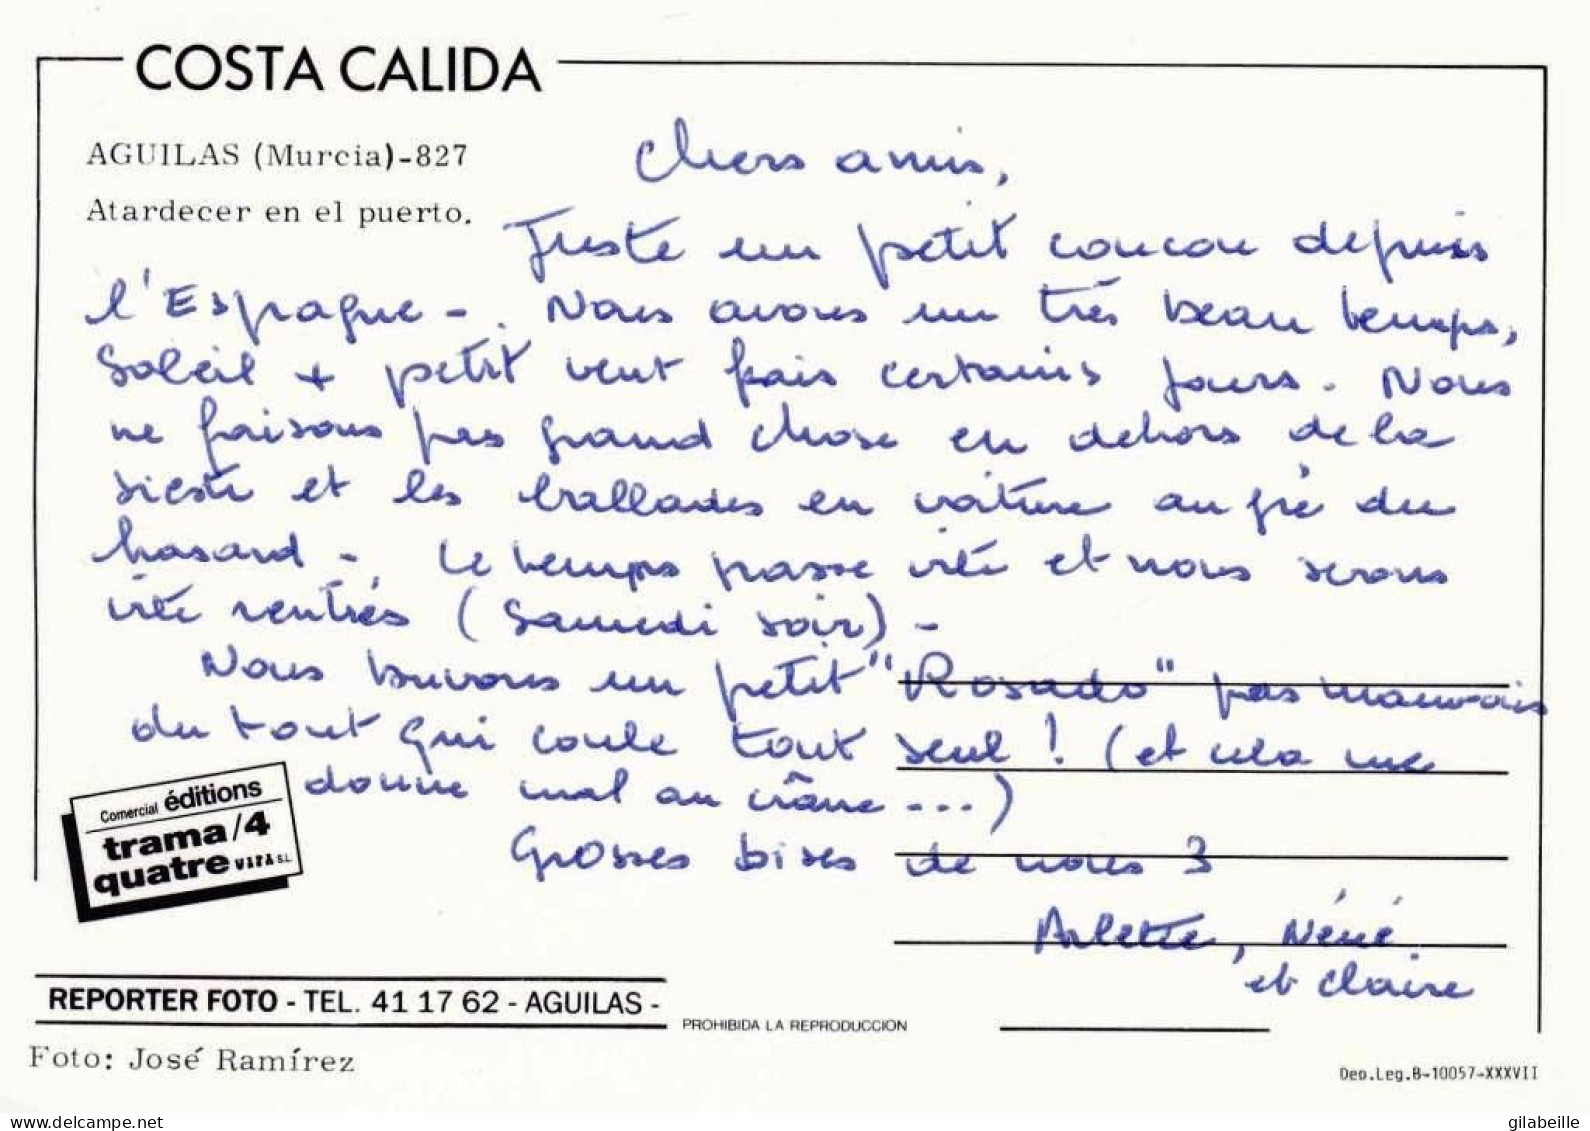 COSTA CALIDA
AGUILAS (Murcia)-827
Atardecer en el puerto.
Chers amis,
Juste un petit coucou depuis
l'Espagne -. Nous avons un très beau temps,
soleil + petit vent frais certains jours. Nous
ne faisons pas grand chose en dehors de la
sieste et les ballades en voiture au gré du
hasard -. Le temps passe vite et nous serons
vite rentrés (Samedi soir) -
Nous buvons un petit "Rosado" pas mauvais
du tout qui coule tout seul ! (et cela me
donne mal au crâne ...)
Grosses bises de nous 3
Arlette, Néné
et Claire
Comercial éditions
trama/4
quatre VIFA S.L.
REPORTER FOTO - TEL. 41 17 62 - AGUILAS -
PROHIBIDA LA REPRODUCCION
Foto: José Ramírez
Dep.Leg.B-10057-XXXVII
delcampe.net
gilabeille